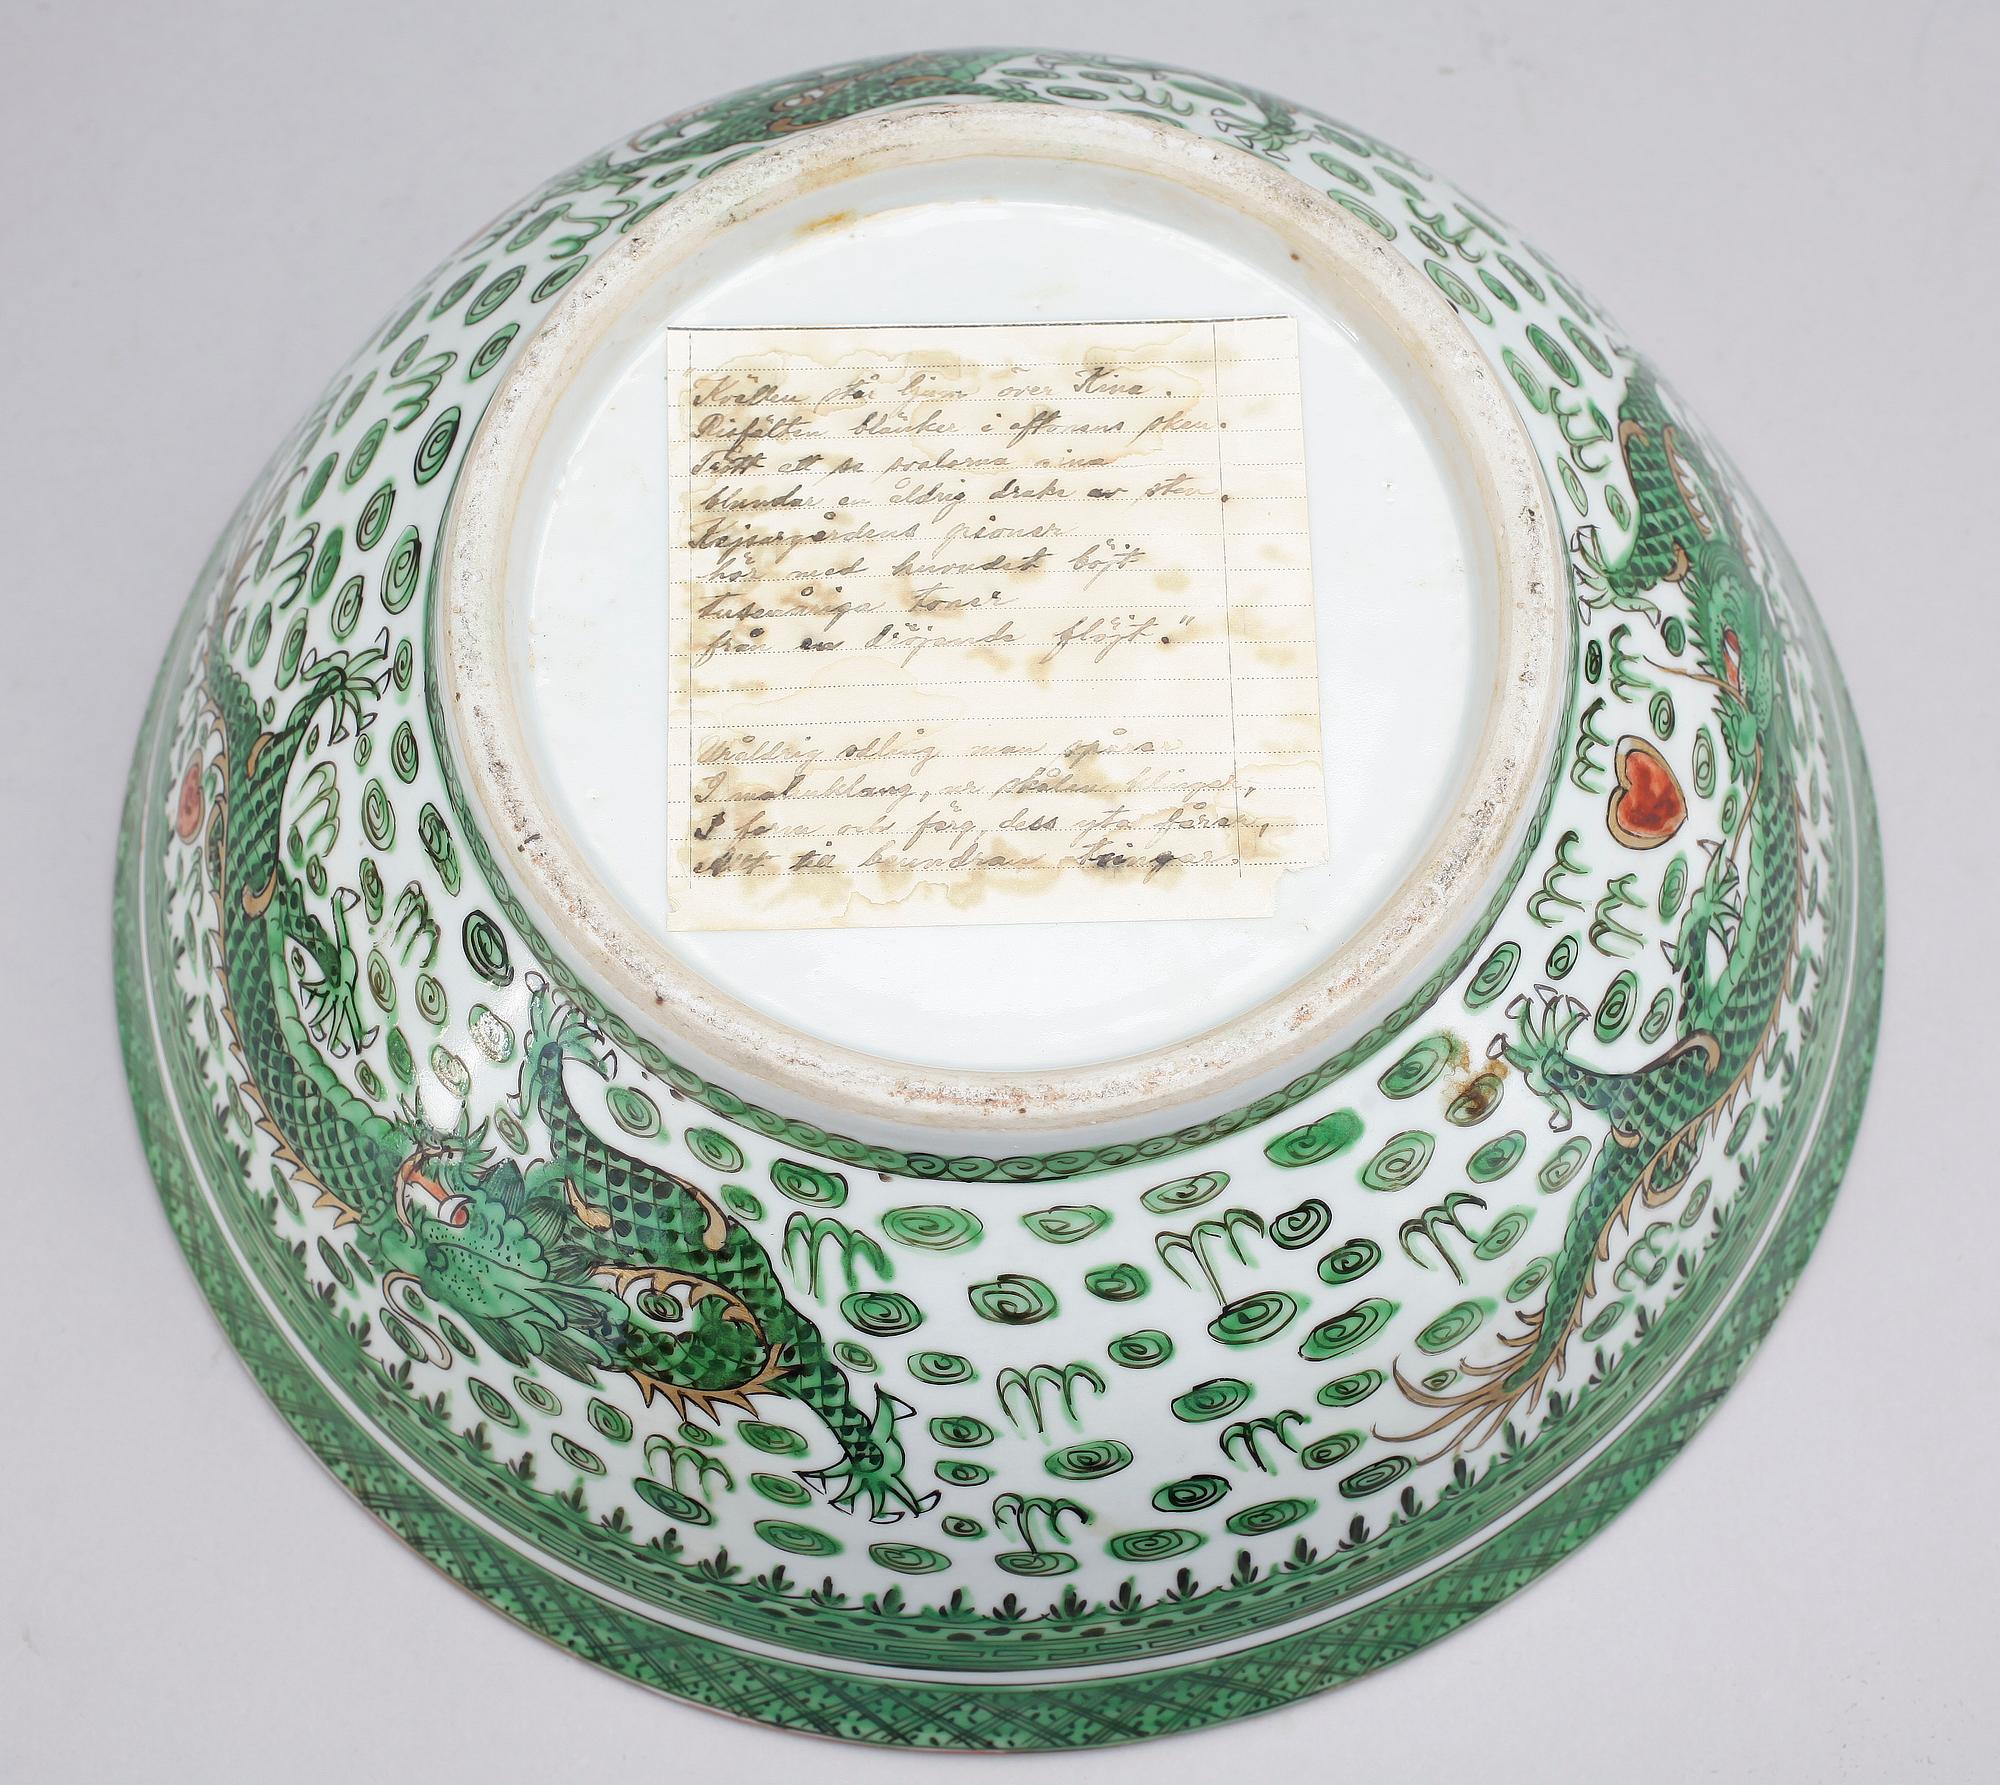 "Kvällen står ljum över Kina.
Risfälten blänker i aftonens sken.
Trött att se svalorna sina
blundar en åldrig drake av sten.
Kejsargårdens pioner
hör med huvudet böjt
tusenåriga toner
från en dröjande flöjt."
Uråldrig odling man spårar
I malmklang, ur skålen klingar,
I form och färg, dess yta fårar,
till beundran tvingar.